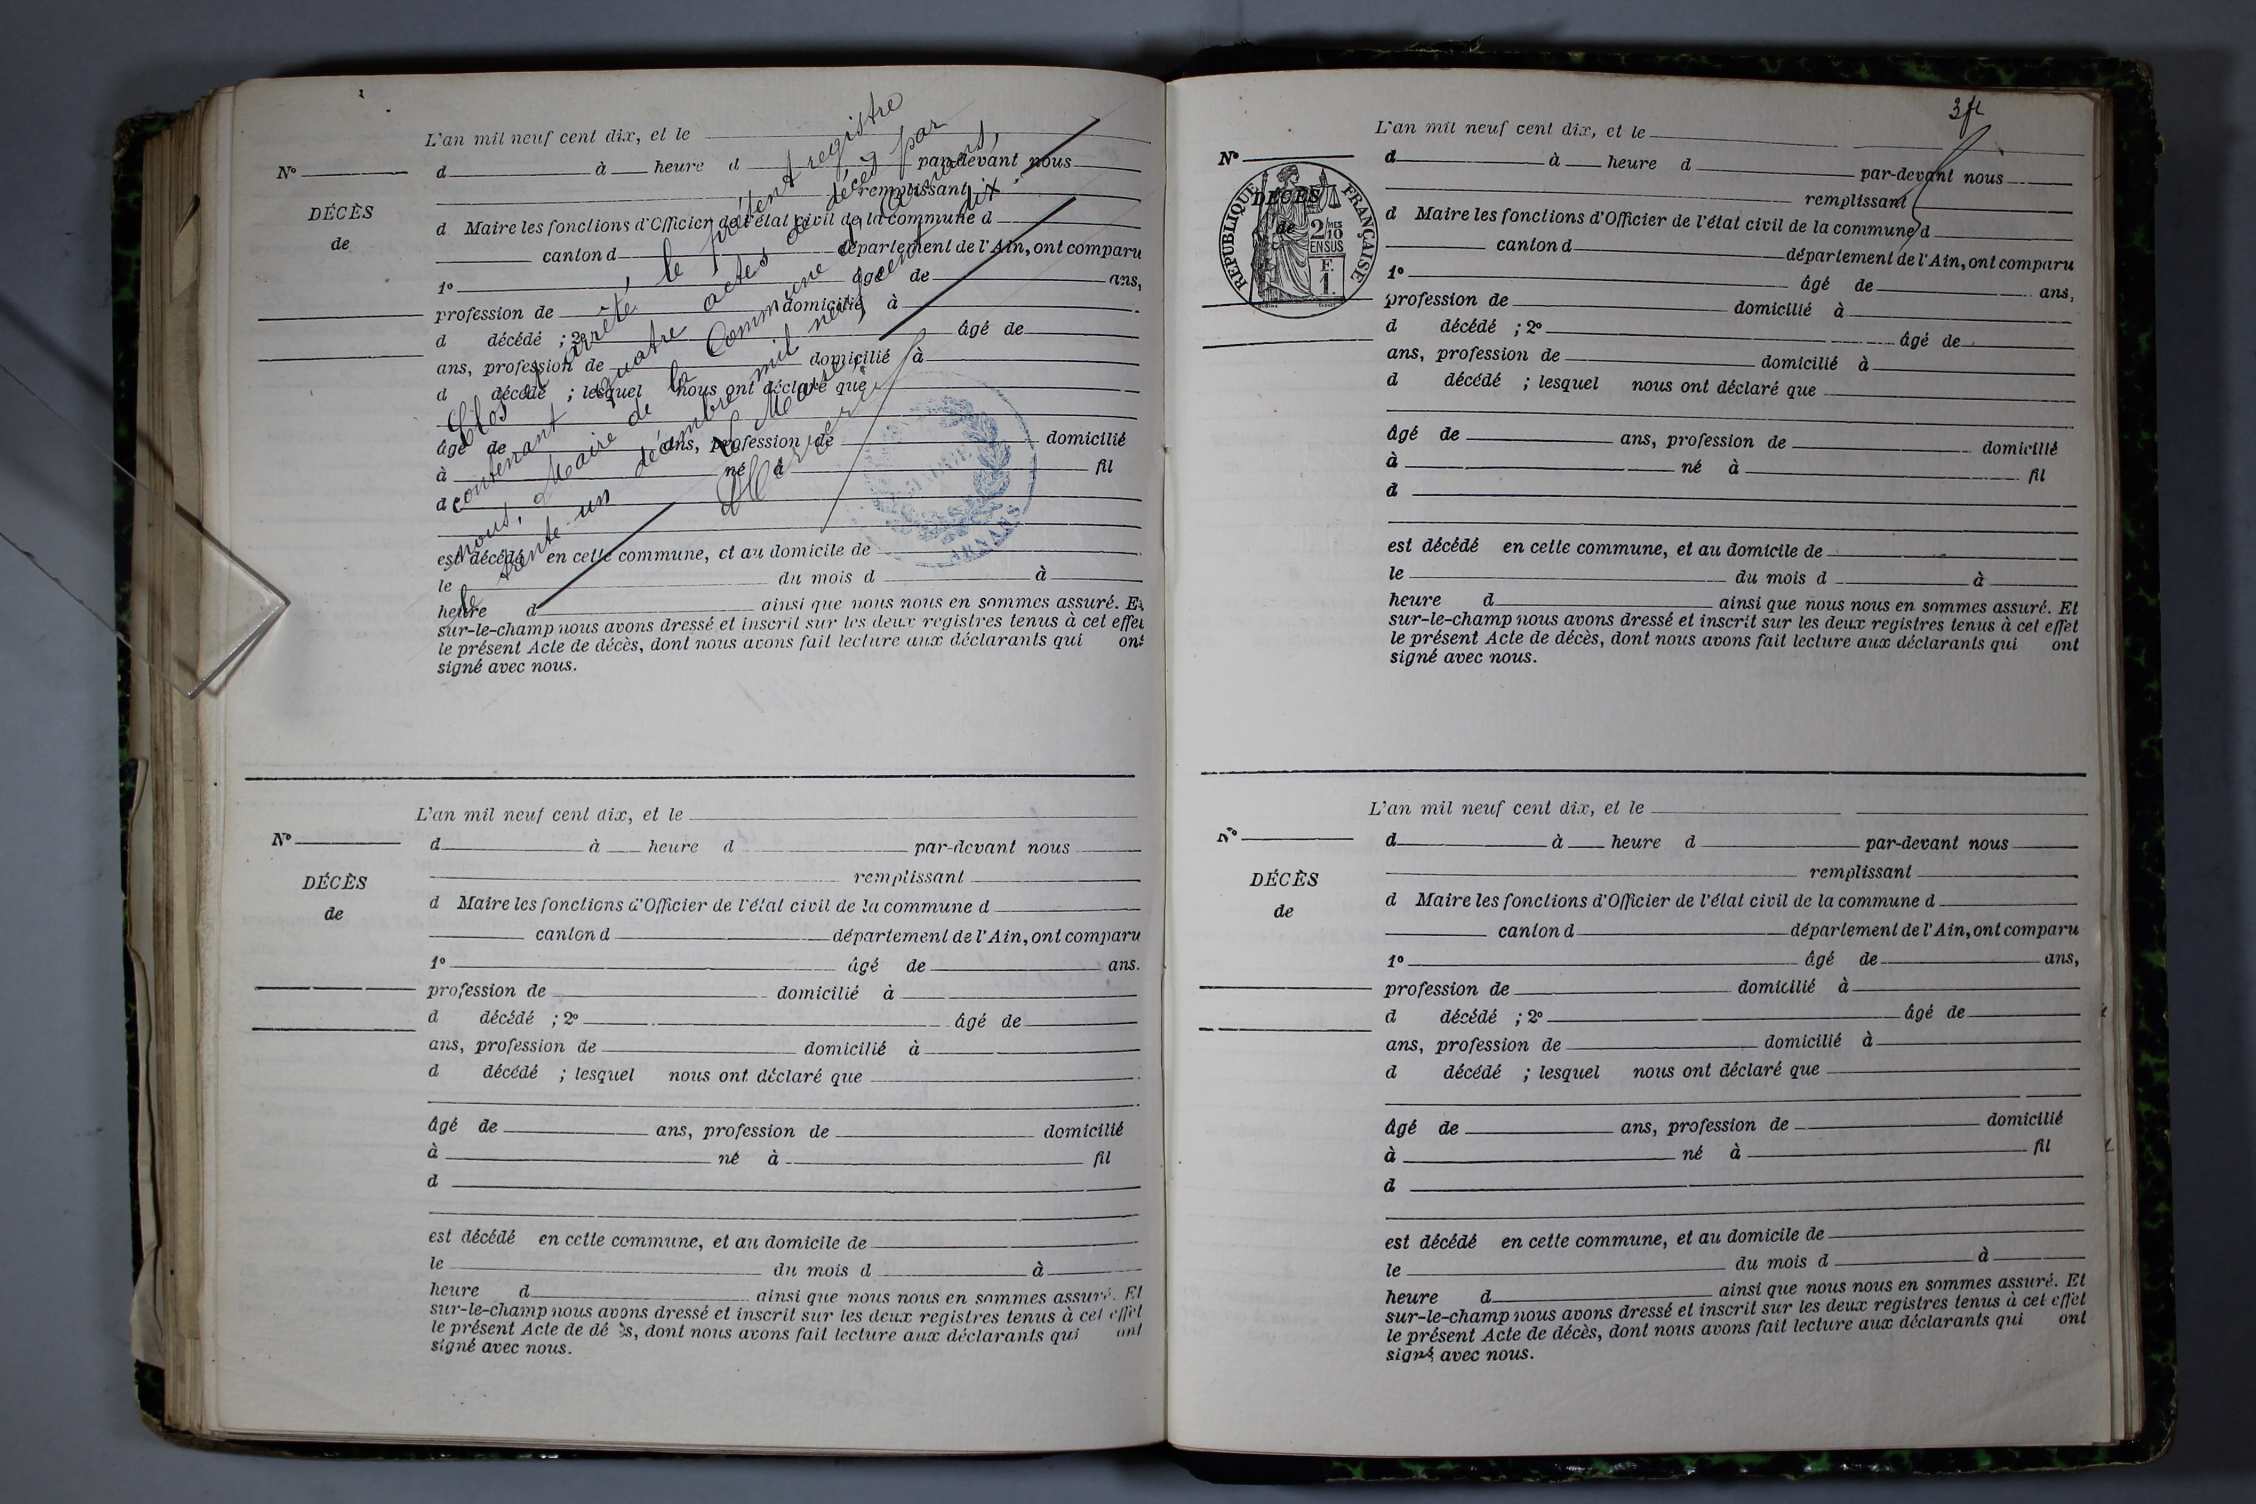 L'an mil neuf cent dix, et le
N°
d à heure d par-devant nous
remplissant
DÉCÈS
de
d Maire les fonctions d'Officier de l'état civil de la commune d
canton d département de l'Ain, ont comparu
1° âgé de ans,
profession de domicilié à
d décédé ; 2° âgé de
ans, profession de domicilié à
d décédé ; lesquel nous ont déclaré que
âgé de ans, profession de domicilié
à né à fil
d
est décédé en cette commune, et au domicile de
le du mois d à
heure d ainsi que nous nous en sommes assuré. Et
sur-le-champ nous avons dressé et inscrit sur les deux registres tenus à cet effet
le présent Acte de décès, dont nous avons fait lecture aux déclarants qui ont
signé avec nous.
Clos et arrêté, le présent registre
contenant quatre actes de décès, par
nous, Maire de la Commune d'Arnans,
le trente-un décembre mil neuf cent dix.
Le Maire,
MAIRIE
ARNANS
L'an mil neuf cent dix, et le
N°
d à heure d par-devant nous
remplissant
DÉCÈS
de
d Maire les fonctions d'Officier de l'état civil de la commune d
canton d département de l'Ain, ont comparu
1° âgé de ans.
profession de domicilié à
d décédé ; 2° âgé de
ans, profession de domicilié à
d décédé ; lesquel nous ont déclaré que
âgé de ans, profession de domicilié
à né à fil
d
est décédé en cette commune, et au domicile de
le du mois d à
heure d ainsi que nous nous en sommes assuré. Et
sur-le-champ nous avons dressé et inscrit sur les deux registres tenus à cet effet
le présent Acte de dé ès, dont nous avons fait lecture aux déclarants qui ont
signé avec nous.
3 ft
L'an mil neuf cent dix, et le
N°
d à heure d par-devant nous
remplissant
DÉCÈS
de
REPUBLIQUE FRANÇAISE
2/10MES
EN SUS
F.
1.
d Maire les fonctions d'Officier de l'état civil de la commune d
canton d département de l'Ain, ont comparu
1° âgé de ans,
profession de domicilié à
d décédé ; 2° âgé de
ans, profession de domicilié à
d décédé ; lesquel nous ont déclaré que
âgé de ans, profession de domicilié
à né à fil
d
est décédé en cette commune, et au domicile de
le du mois d à
heure d ainsi que nous nous en sommes assuré. Et
sur-le-champ nous avons dressé et inscrit sur les deux registres tenus à cet effet
le présent Acte de décès, dont nous avons fait lecture aux déclarants qui ont
signé avec nous.
L'an mil neuf cent dix, et le
N°
d à heure d par-devant nous
remplissant
DÉCÈS
de
d Maire les fonctions d'Officier de l'état civil de la commune d
canton d département de l'Ain, ont comparu
1° âgé de ans,
profession de domicilié à
d décédé ; 2° âgé de
ans, profession de domicilié à
d décédé ; lesquel nous ont déclaré que
âgé de ans, profession de domicilié
à né à fil
d
est décédé en cette commune, et au domicile de
le du mois d à
heure d ainsi que nous nous en sommes assuré. Et
sur-le-champ nous avons dressé et inscrit sur les deux registres tenus à cet effet
le présent Acte de décès, dont nous avons fait lecture aux déclarants qui ont
signé avec nous.